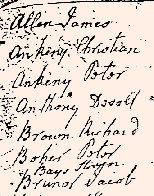 Allen James
Ankeny Christian
Ankeny Peter
Anthony
Brown Richard
Boker Peter
Bays
Bruner Jacob